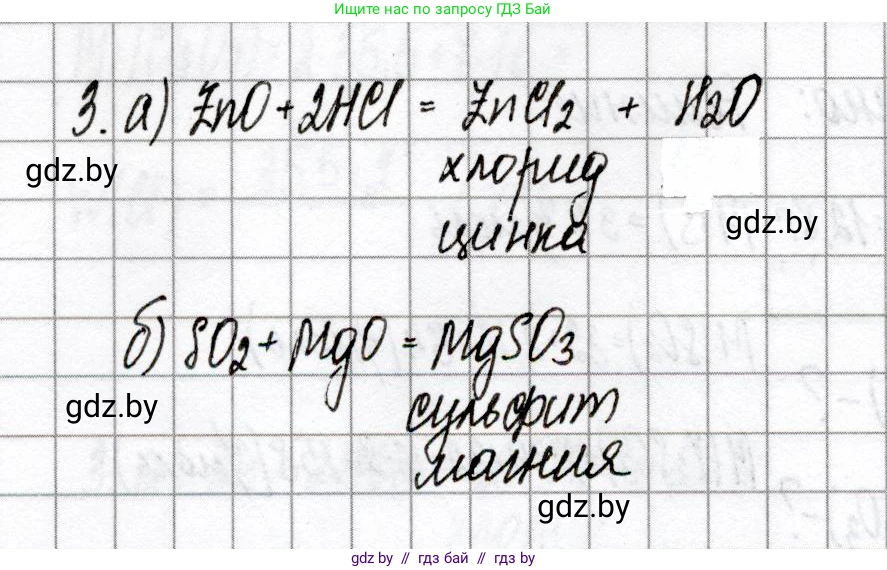 Ищите нас по запросу ГДЗ Бай
3. а) ZnO + 2HCl = ZnCl2 + H2O
хлорид
gdz.by
gdz.by
цинка
б) SO2 + MgO = MgSO3
сульфит
gdz.by
магния
gdz.by
gdz.by // гдз бай // гдз by